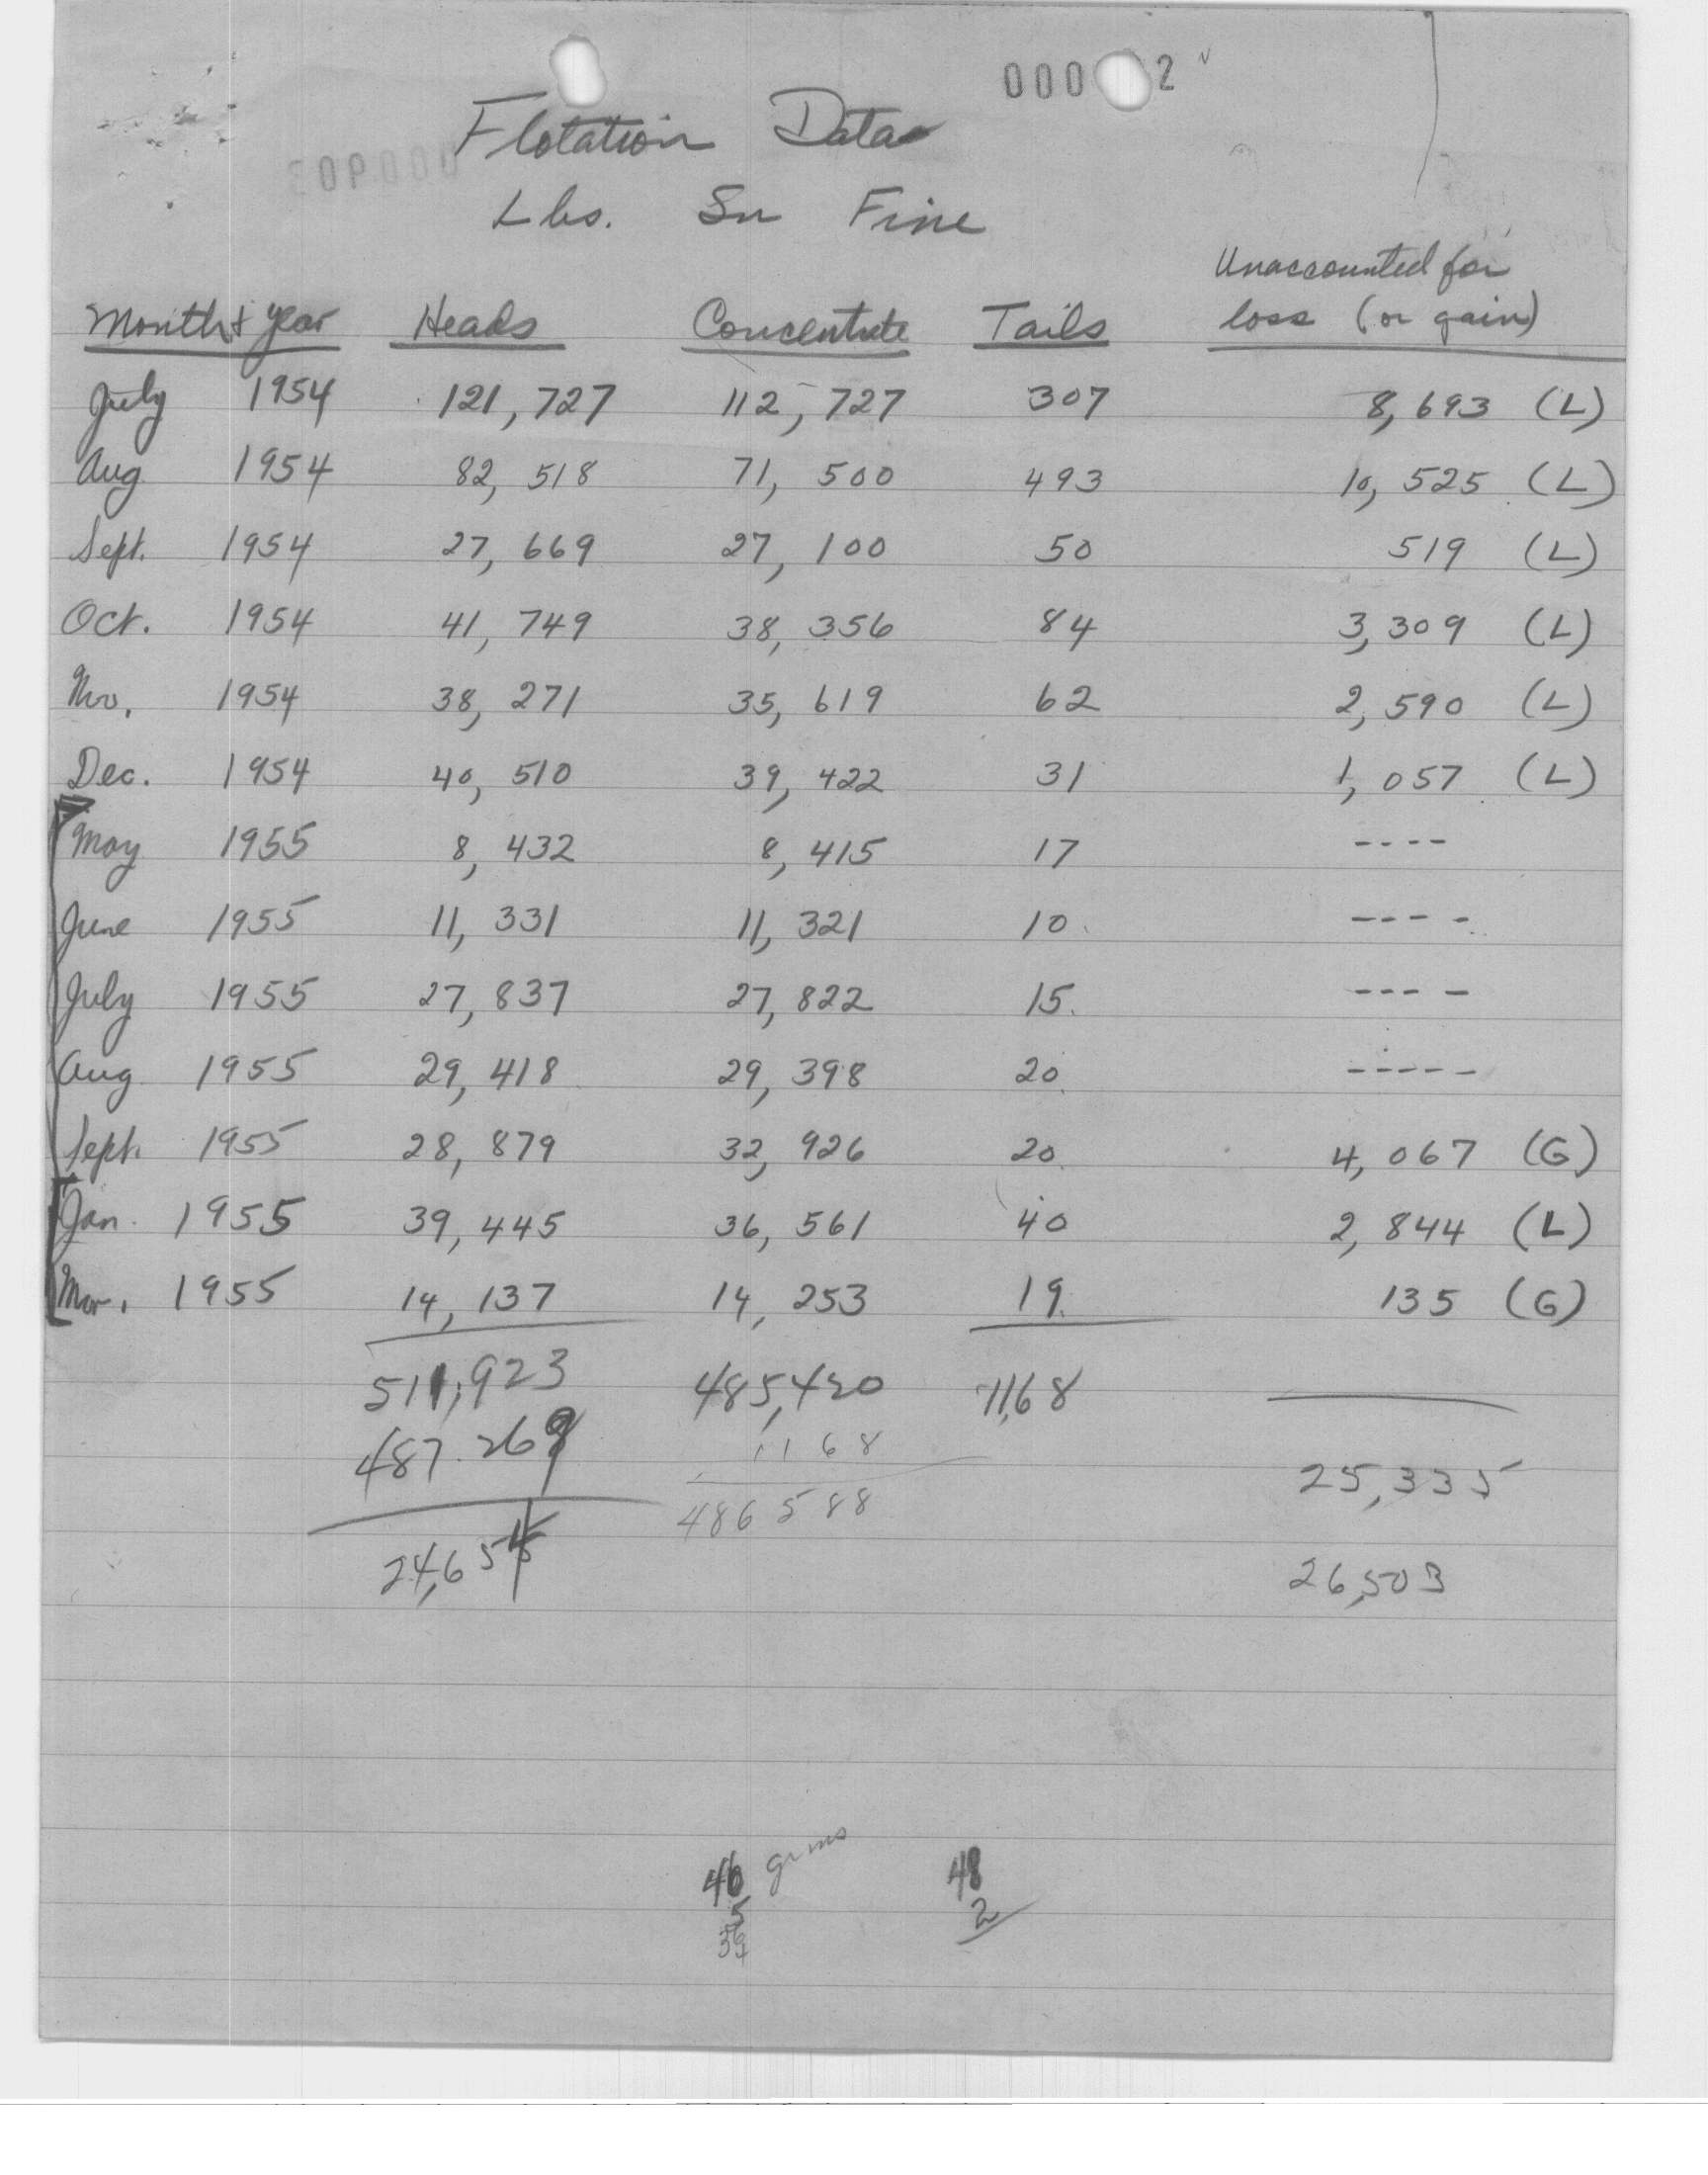 000 2
Flotation Data
Lbs. Sn Fine
Unaccounted for
Month & year Heads Concentrate Tails loss (or gain)
July 1954 121,727 112,727 307 8,693 (L)
Aug 1954 82,518 71,500 493 10,525 (L)
Sept. 1954 27,669 27,100 50 519 (L)
Oct. 1954 41,749 38,356 84 3,309 (L)
Nov. 1954 38,271 35,619 62 2,590 (L)
Dec. 1954 40,510 39,422 31 1,057 (L)
May 1955 8,432 8,415 17 ----
June 1955 11,331 11,321 10 ----
July 1955 27,837 27,822 15 ----
Aug 1955 29,418 29,398 20 -----
Sept. 1955 28,879 32,926 20 4,067 (G)
Jan. 1955 39,445 36,561 40 2,844 (L)
Mar. 1955 14,137 14,253 19 135 (G)
511,923 485,420 1168
487.269 1168 25,335
486588
24,654 26,503
46 grms 48
5 2